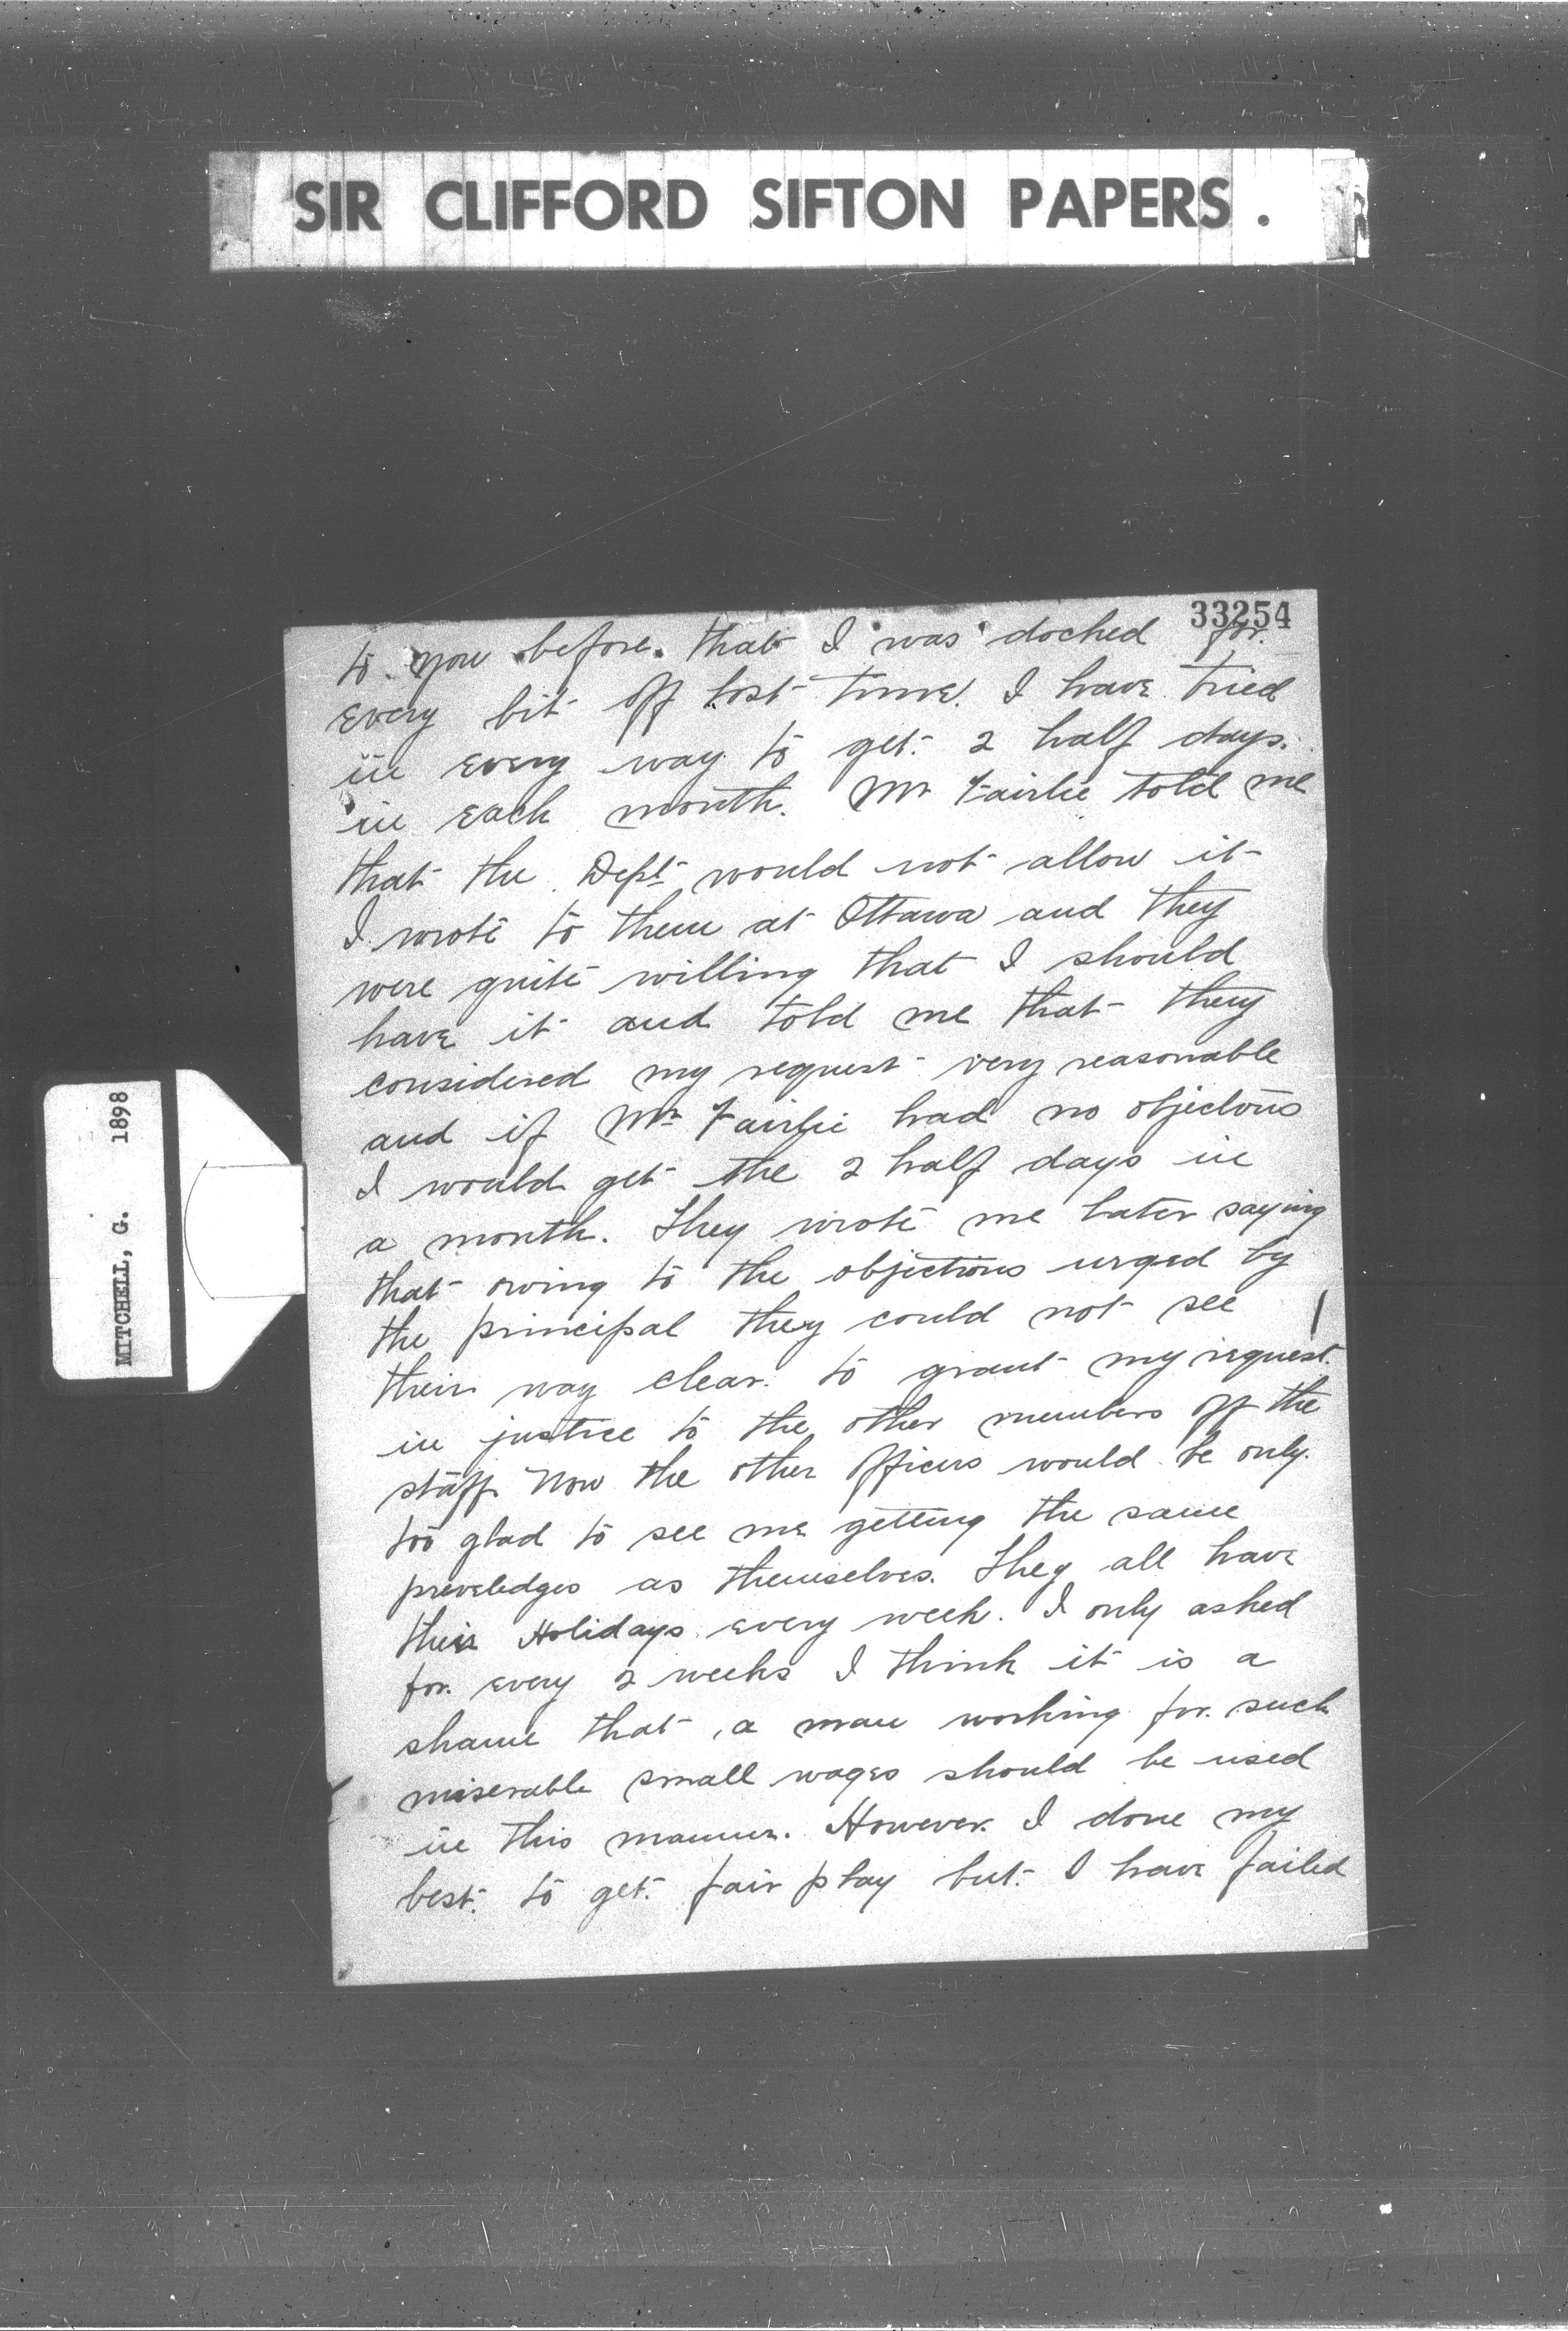 SIR CLIFFORD SIFTON PAPERS.
33254
to you before. that I was docked for.
every bit off lost time. I have tried
in every way to get 2 half days.
in each month. Mr Fairlie told me
that the Dept would not allow it
I wrote to them at Ottawa and they
were quite willing that I should
have it and told me that they
considered my request very reasonable
and if Mr Fairlie had no objections
I would get the 2 half days in
a month. They wrote me later saying
that owing to the objections urged by
the principal they could not see
their way clear. to grant my request.
in justice to the other members off the
staff. Now the other Officers would be only.
too glad to see me getting the same
preveledges as themselves. They all have
their Holidays every week. I only asked
for. every 2 weeks I think it is a
shame that a man working for. such
miserable small wages should be used
in this manner. However. I done my
best. to get. fair play but. I have failed
MITCHELL, G. 1898